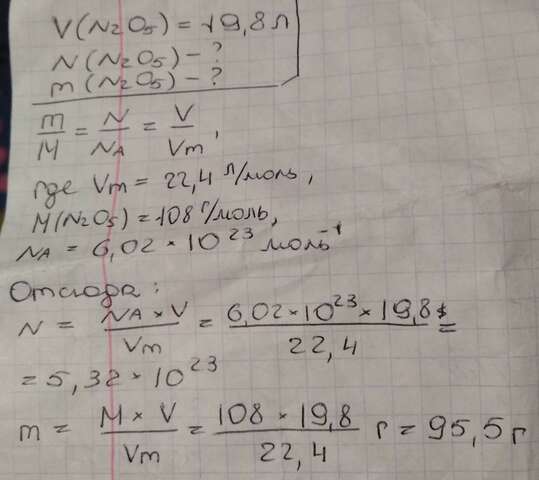 V(N₂O₅) = 19,8 л
N(N₂O₅) - ?
m(N₂O₅) - ?
m/M = N/NA = V/Vm,
где Vm = 22,4 л/моль,
M(N₂O₅) = 108 г/моль,
NA = 6,02 × 10²³ моль⁻¹
Отсюда:
N = NA × V / Vm = 6,02 × 10²³ × 19,8 / 22,4 =
= 5,32 × 10²³
m = M × V / Vm = 108 × 19,8 / 22,4 г = 95,5 г